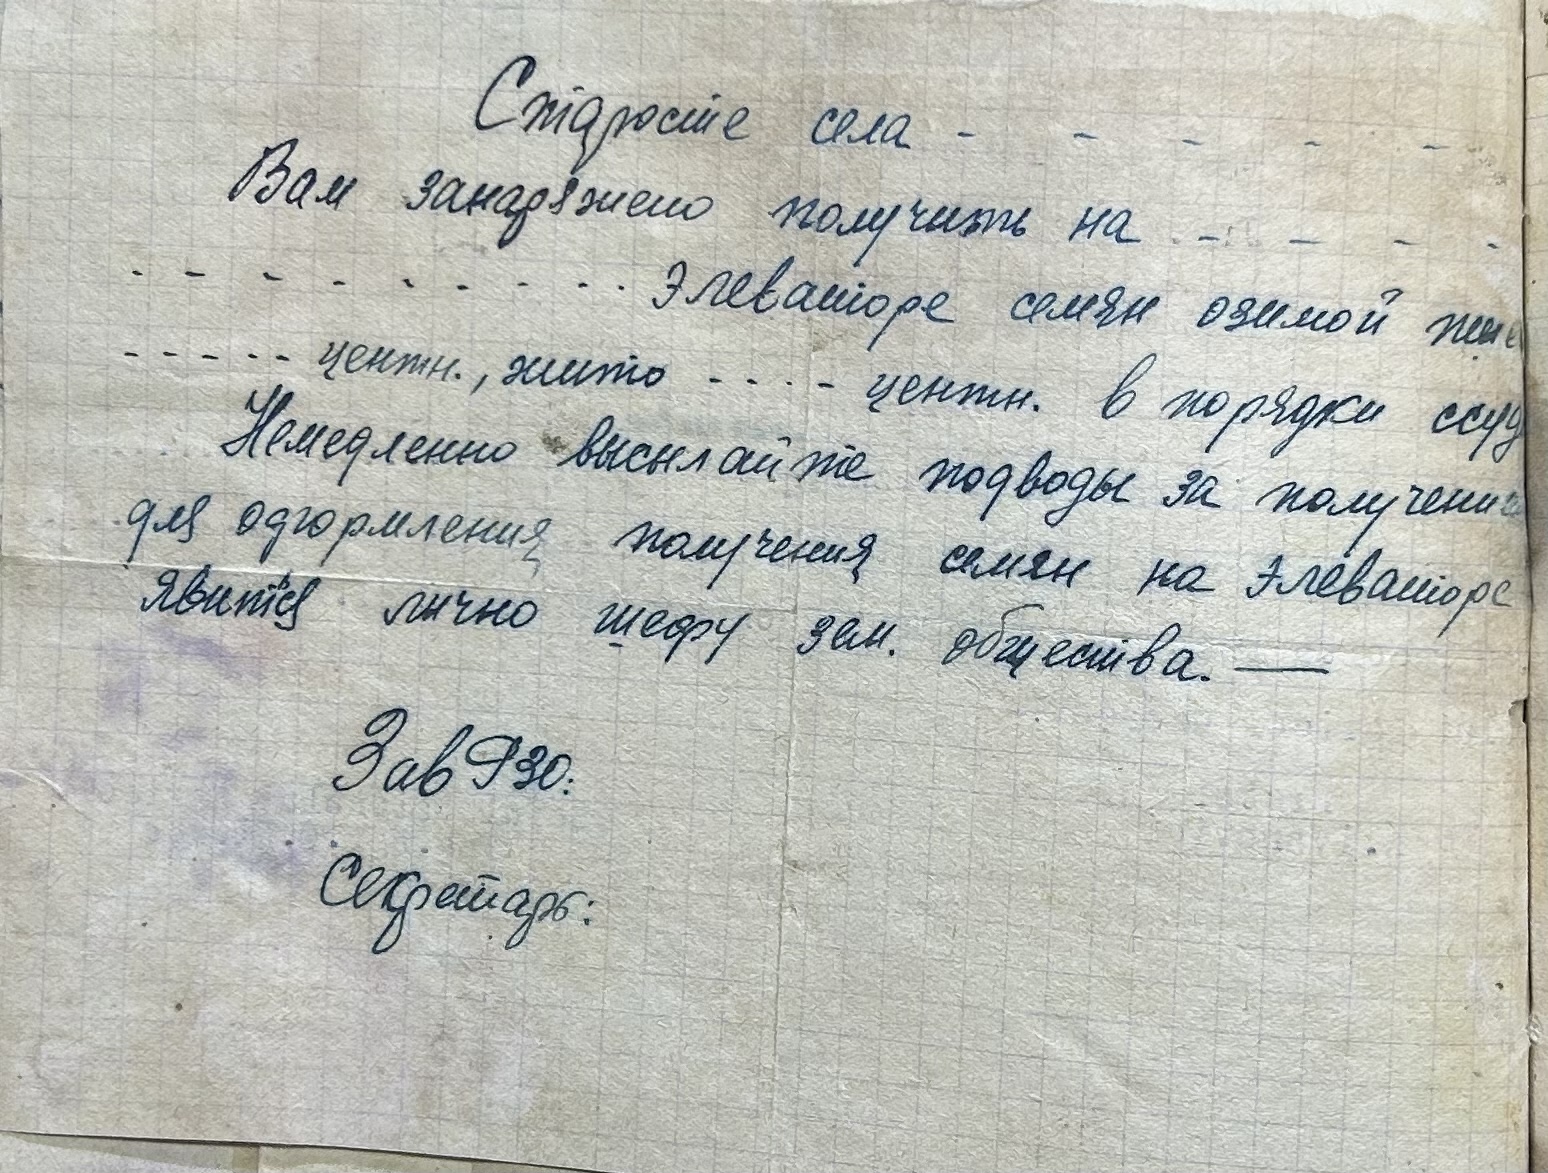 Старосте села - - - - -
Вам занаряжено получить на - - - -
- - - - - - - - - элеваторе семян озимой пше
- - - - - центн., жито - - - - центн. в порядки ссуд
Немедленно высылайте подводы за получени
для одгормления получения семян на элеваторе
явится лично шефу зем. общества. —
Зав РЗО:
Секретарь: